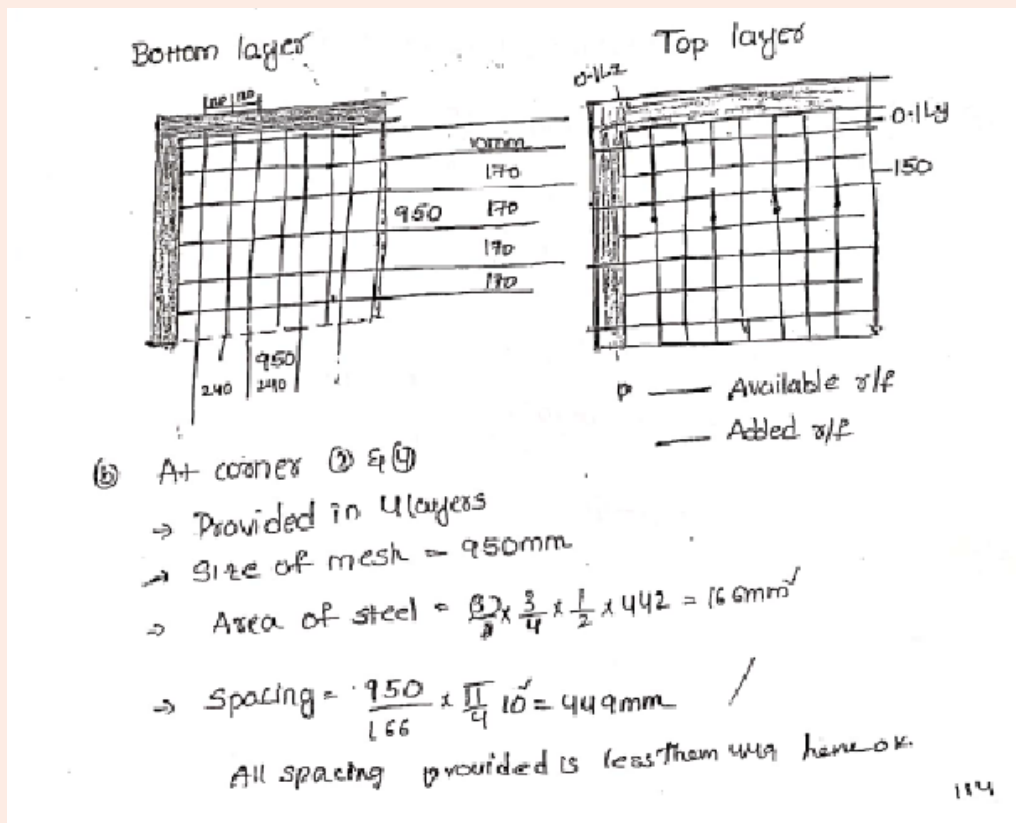 Bottom layer
Top layer
0.1Ly
150
170
950
170
170
950
240
Available r/f
Added r/f
(b) At corner ② & ④
→ Provided in 4 layers
→ Size of mesh = 950mm
→ Area of steel = × 3/4 × 1/2 × 442 = 166mm²
→ Spacing = 950/166 × π/4 10² = 449mm
All spacing provided is less them 449 hence ok.